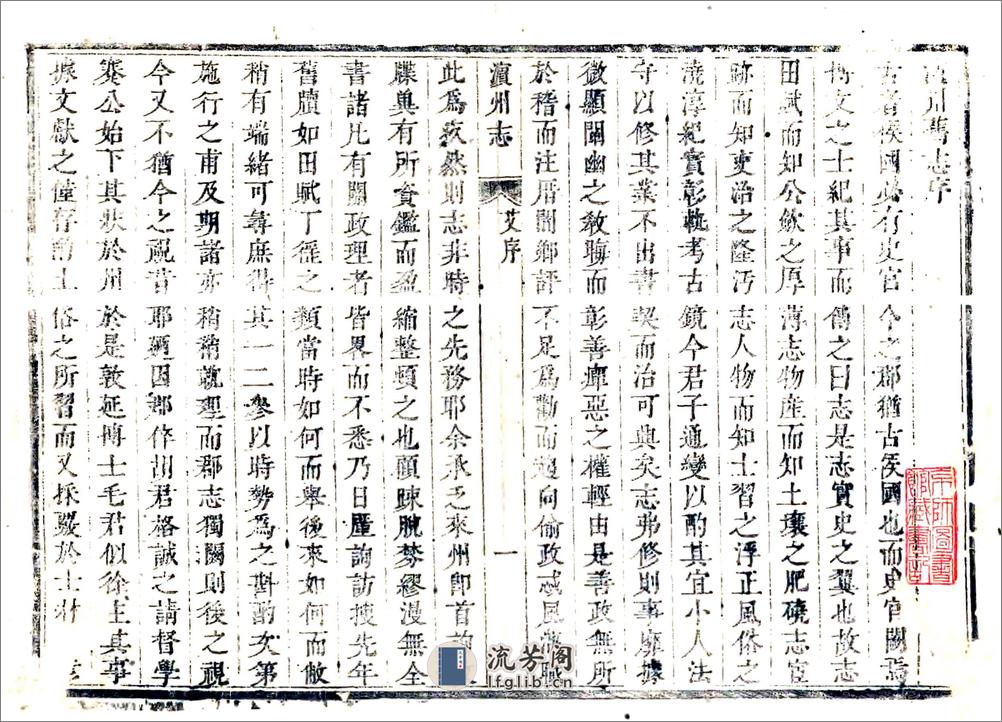 濵州舊志序
古者侯國必有史官今之郡猶古侯國也而史官闕焉
博文之士紀其事而傳之曰志是志實史之翼也故志
田賦而知公歛之厚薄志物産而知土壤之肥磽志宦
跡而知吏治之隆汚志人物而知士習之浮正風俗之
澆淳紀實彰軌考古鏡今君子通變以酌其宜小人法
守以修其業不出書契而治可典矣志弗修則事靡據
微顯闡幽之敎晦而彰善癉惡之權輕由是善政無所
於稽而注厝闇鄉評不足爲勸而趨向偷政忒風常職
濵州志
艾序
一
此爲疚然則志非時之先務耶余承乏來州卽首
牒奠有所資鑑而盈縮整頓之也頤踈脫棼繆漫無全
書諸凡有關政理者皆畧而不悉乃日廑詢訪搜先年
舊牘如田賦丁徭之類當時如何而舉後來如何而敝
稍有端緒可尋庶得其一二叅以時勢爲之斟酌次第
施行之甫及期諸亦稍稍就理而郡志獨闕則後之視
今又不猶今之視昔耶廼因郡倅胡君格誠之請督學
蹇公始下其狀於州於是敦延博士毛君似徐主其事
據文獻之僅存謂土俗之所習而又採覈於士林
宗師圖書
館藏書記
流芳阁
lfglib.cn